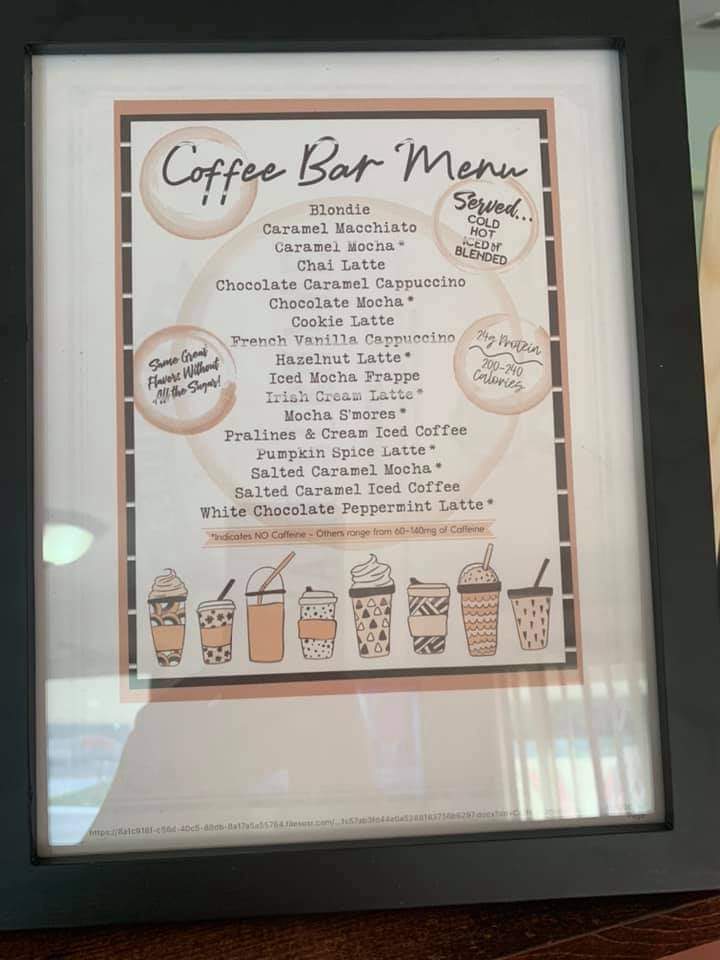 Coffee Bar Menu
Served...
COLD
HOT
ICED or
BLENDED
Blondie
Caramel Macchiato
Caramel Mocha*
Chai Latte
Chocolate Caramel Cappuccino
Chocolate Mocha*
Cookie Latte
French Vanilla Cappuccino
Hazelnut Latte*
Iced Mocha Frappe
Irish Cream Latte*
Mocha S'mores*
Pralines & Cream Iced Coffee
Pumpkin Spice Latte*
Salted Caramel Mocha*
Salted Caramel Iced Coffee
White Chocolate Peppermint Latte*
Same Great
Flavors Without
All the Sugar!
24g Protein
200-240
Calories
*Indicates NO Caffeine - Others range from 60-140mg of Caffeine